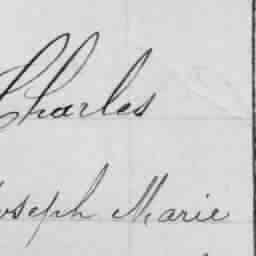 Charles
Joseph Marie